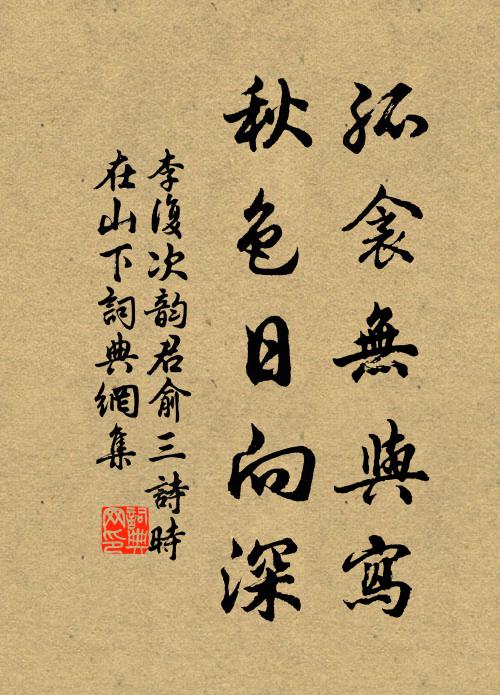 孤衾無與寫
秋色日向深
李復次韵君俞三詩時
在山下詞典網集
詞典
网印